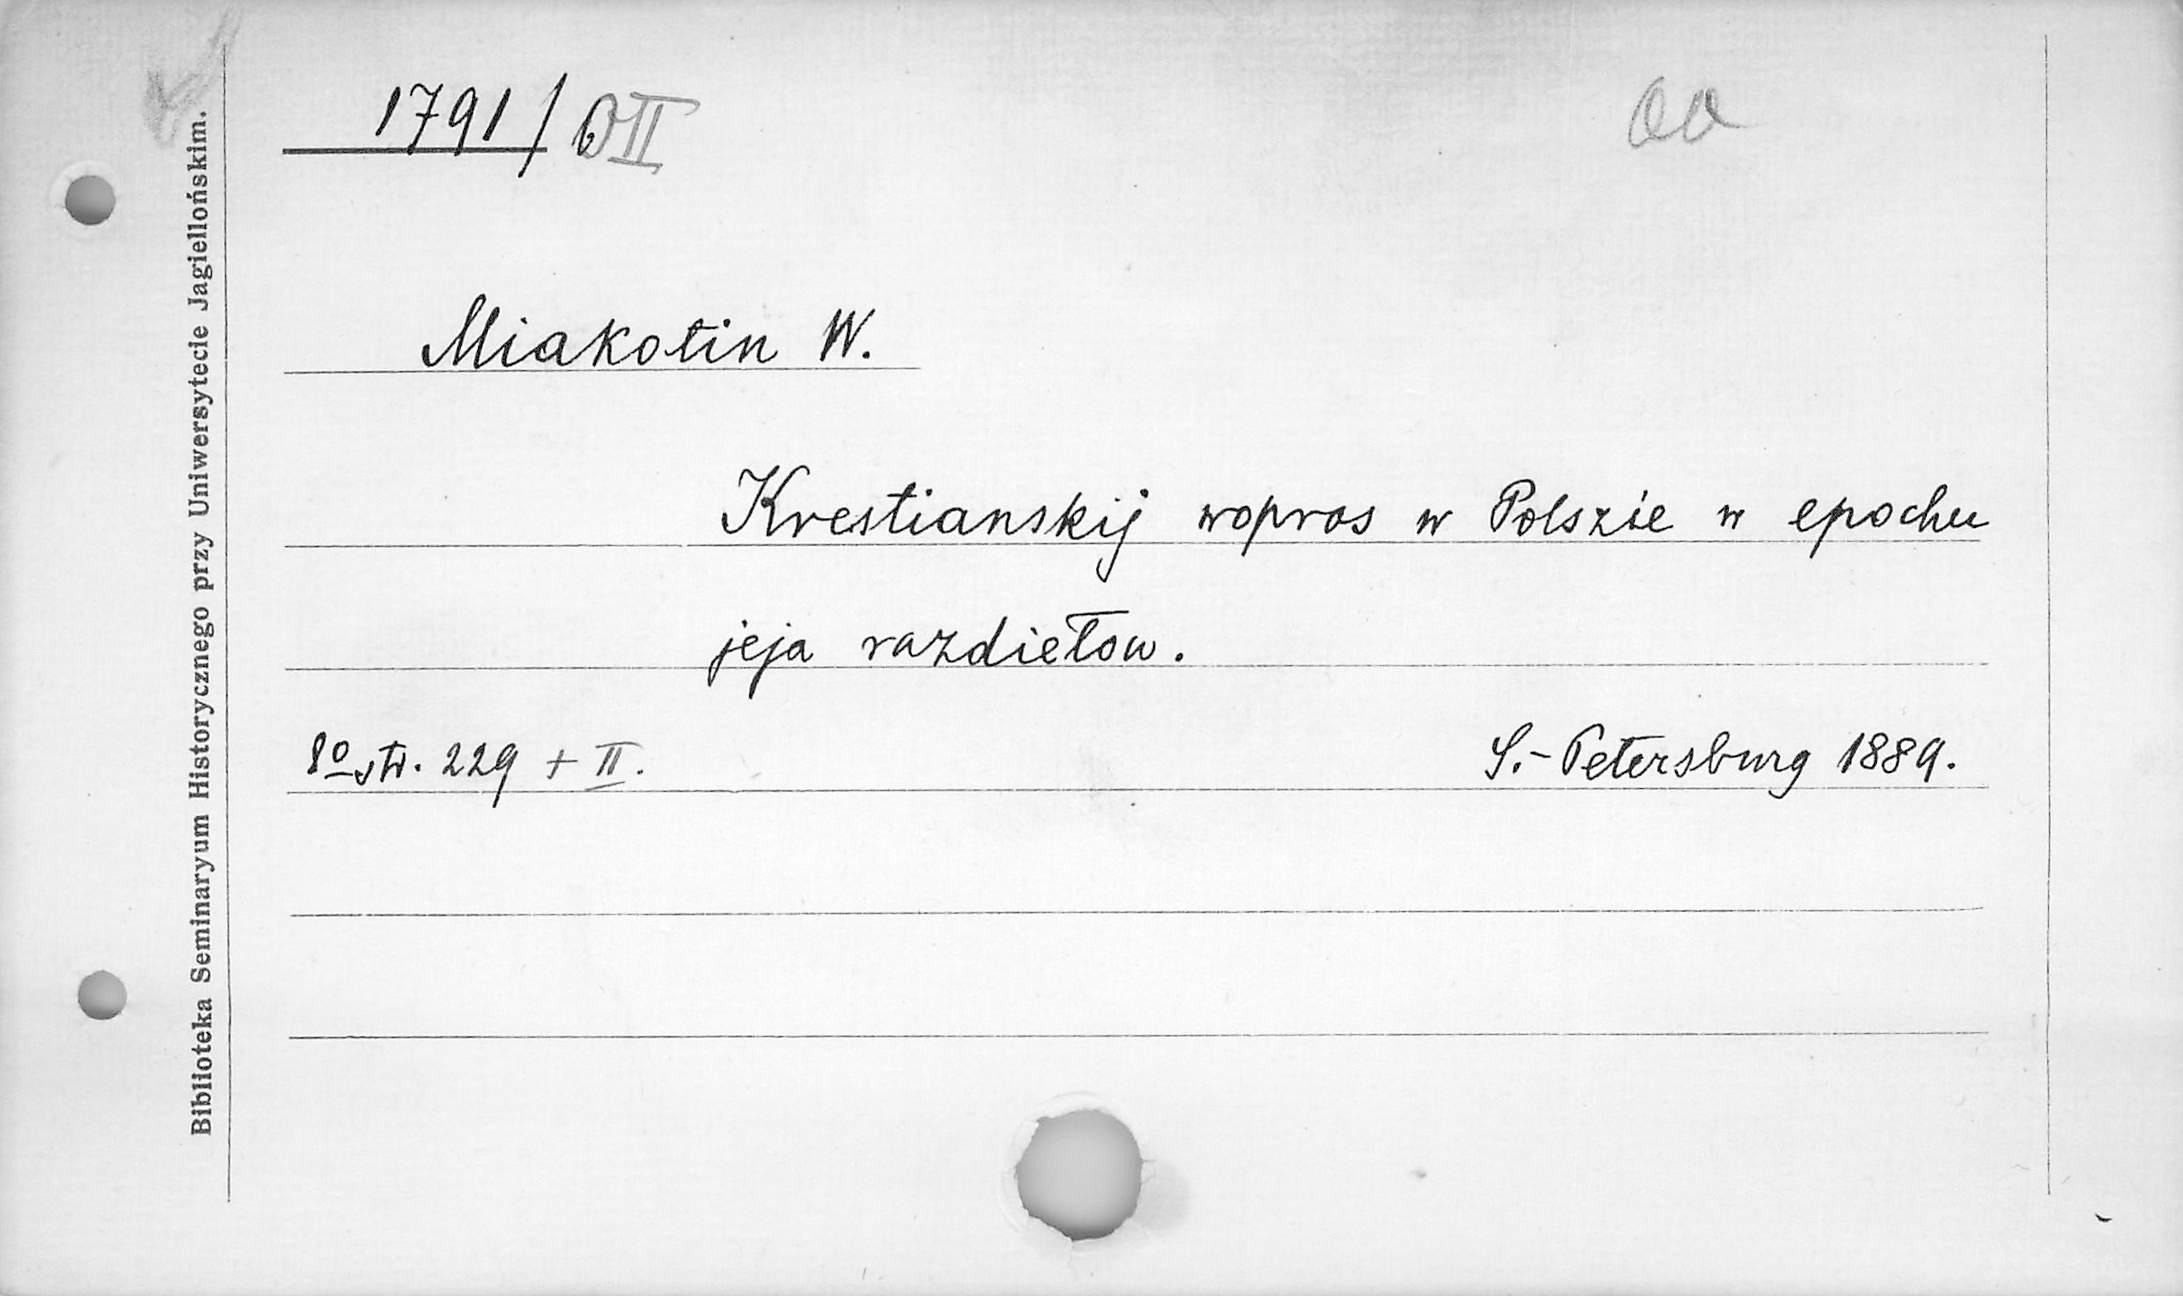 1791/ II
Miakotin W.
Krestianskij wopros w Polszie w epochu
jeja razdiełow.
8º str. 229 + II. S.-Petersburg 1889.
Biblioteka Seminaryum Historycznego przy Uniwersytecie Jagiellońskim.